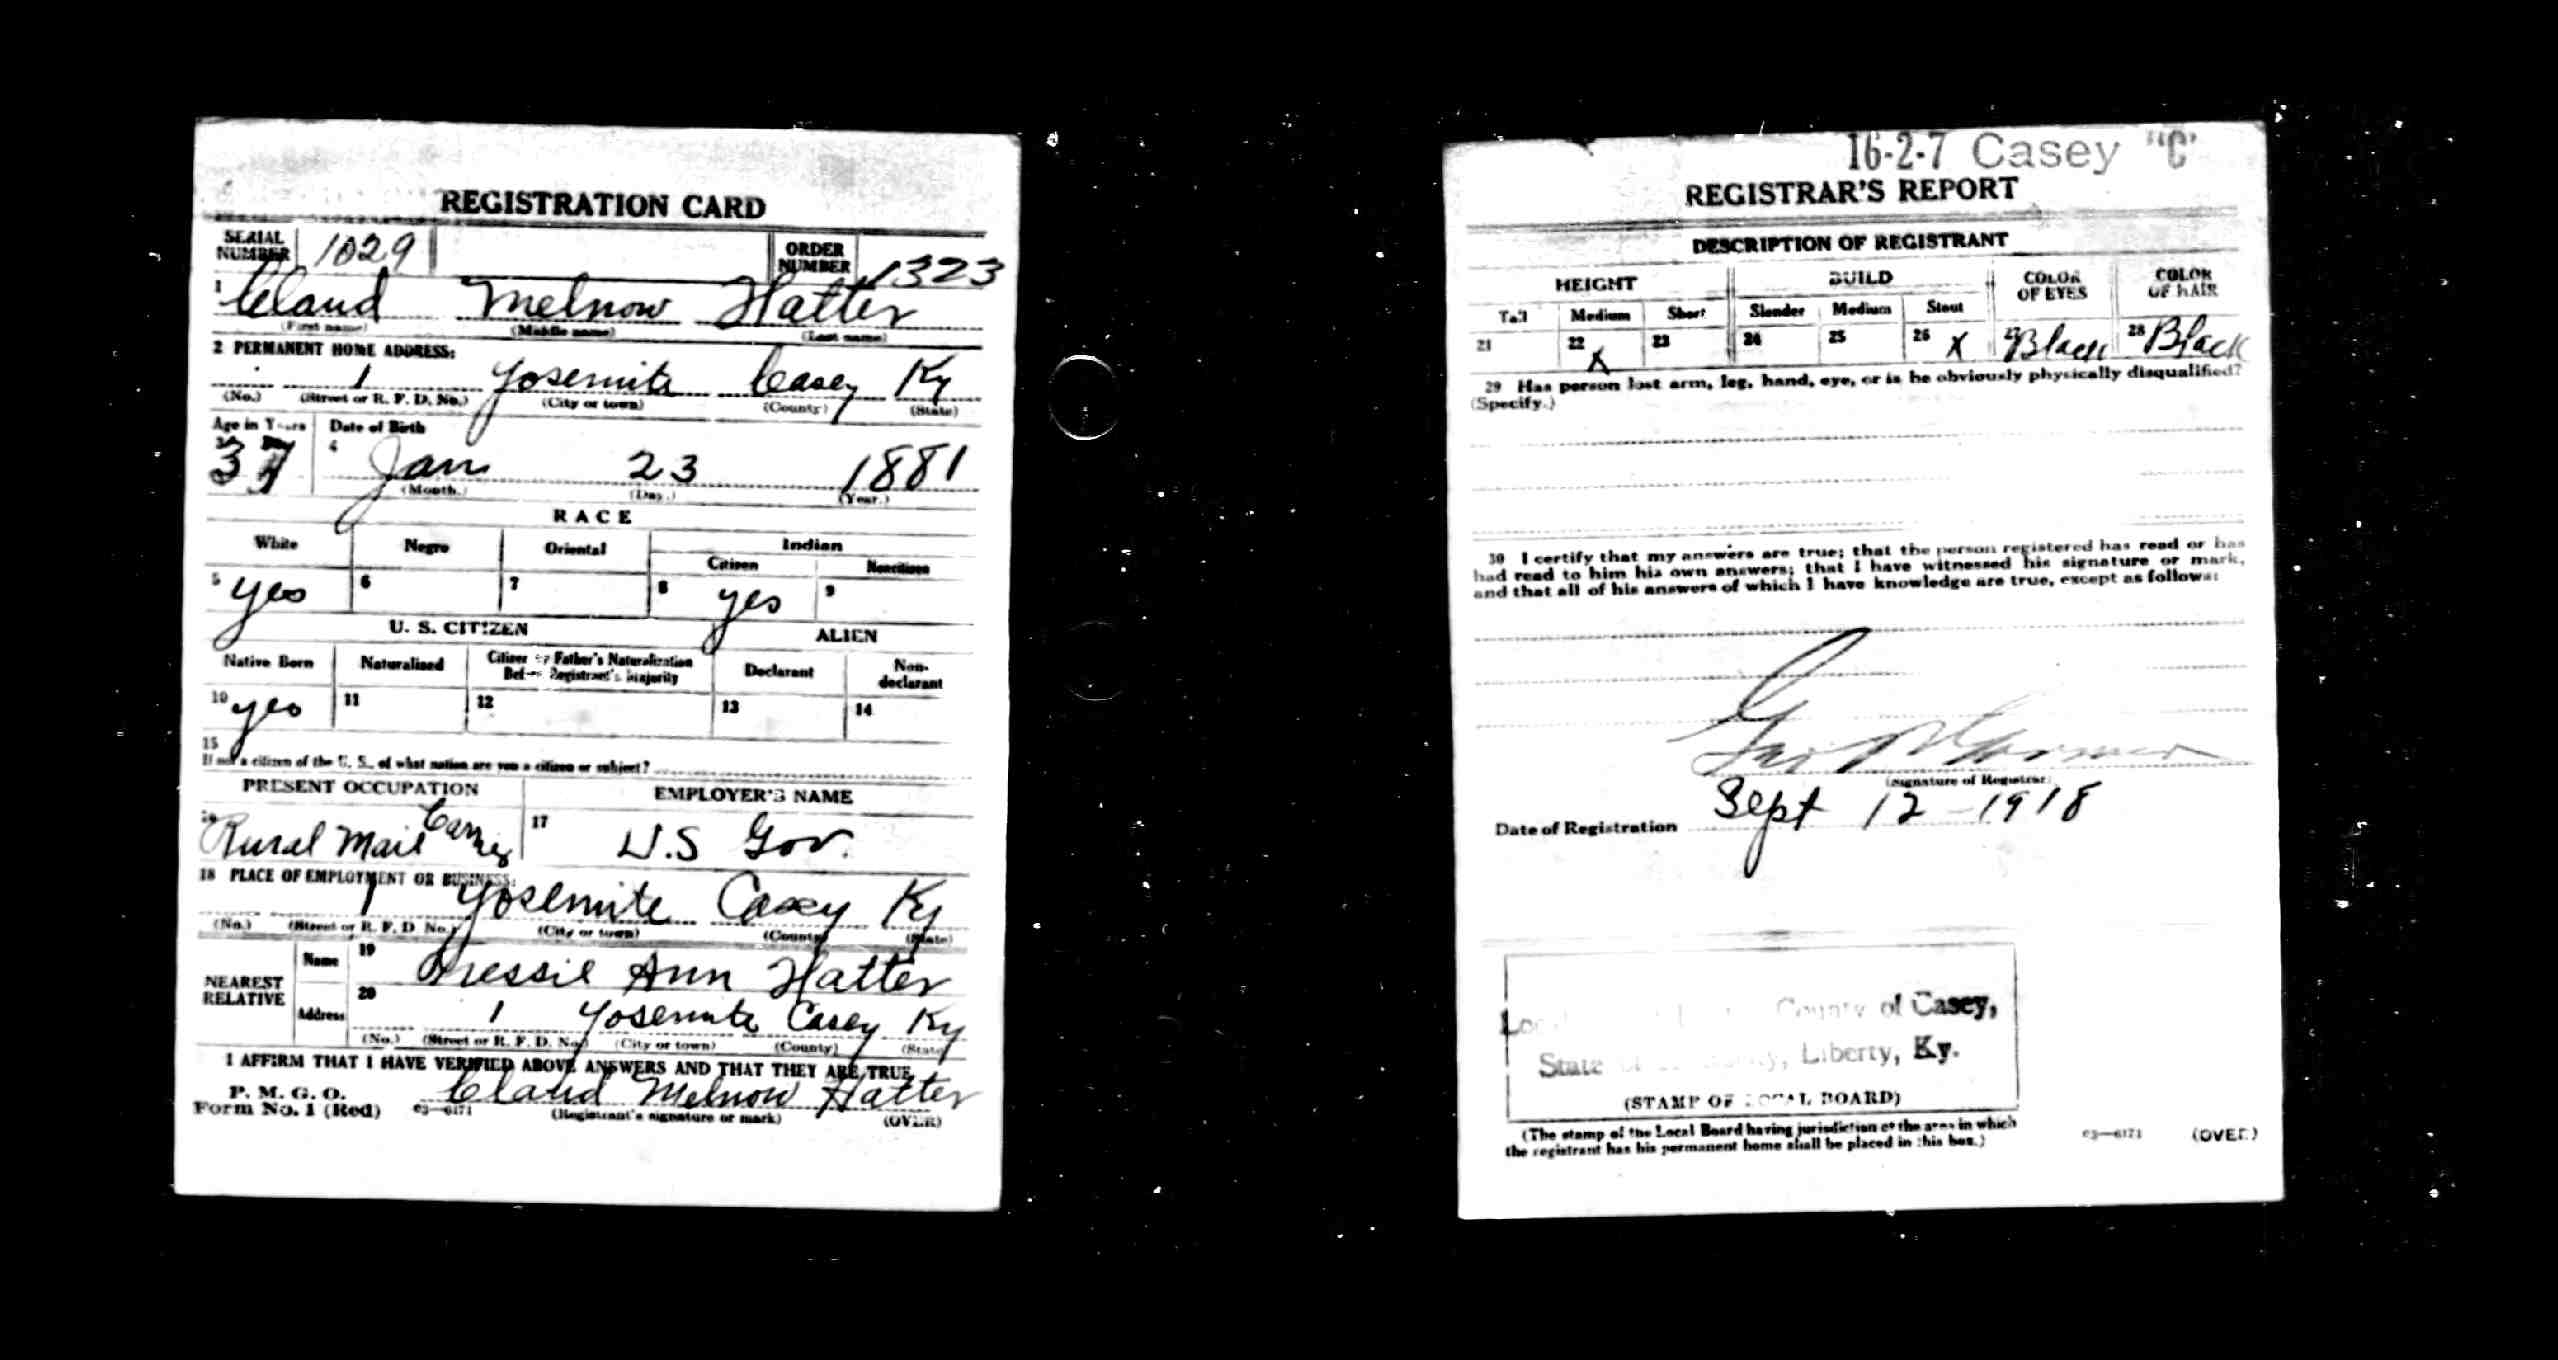 REGISTRATION CARD
SERIAL NUMBER 1029 ORDER NUMBER 1323
1 Claud Melnow Hatter
(First name) (Middle name) (Last name)
2 PERMANENT HOME ADDRESS:
1 Yosemite Casey Ky
(No.) (Street or R. F. D. No.) (City or town) (County) (State)
Age in Years Date of Birth
37 4 Jan 23 1881
(Month.) (Day.) (Year.)
RACE
White Negro Oriental Indian
Citizen Noncitizen
5 yes 6 7 8 yes 9
U. S. CITIZEN ALIEN
Native Born Naturalized Citizen by Father's Naturalization Before Registrant's Majority Declarant Non-declarant
10 yes 11 12 13 14
15
If not a citizen of the U. S., of what nation are you a citizen or subject?
PRESENT OCCUPATION EMPLOYER'S NAME
16 Rural Mail Carrier 17 U.S Gov.
18 PLACE OF EMPLOYMENT OR BUSINESS:
1 Yosemite Casey Ky
(No.) (Street or R. F. D. No.) (City or town) (County) (State)
NEAREST RELATIVE
Name 19 Ann Hatter
Address 20 1 Yosemite Casey Ky
(No.) (Street or R. F. D. No.) (City or town) (County) (State)
I AFFIRM THAT I HAVE VERIFIED ABOVE ANSWERS AND THAT THEY ARE TRUE
P. M. G. O.
Form No. 1 (Red) 03—6171 Claud Melnow Hatter
(Registrant's signature or mark) (OVER)
16-2-7 Casey "C"
REGISTRAR'S REPORT
DESCRIPTION OF REGISTRANT
HEIGHT BUILD COLOR OF EYES COLOR OF HAIR
Tall Medium Short Slender Medium Stout
21 22 X 23 24 25 26 X 27 Black 28 Black
29 Has person lost arm, leg, hand, eye, or is he obviously physically disqualified?
(Specify.)
30 I certify that my answers are true; that the person registered has read or has
had read to him his own answers; that I have witnessed his signature or mark,
and that all of his answers of which I have knowledge are true, except as follows:
(Signature of Registrar)
Date of Registration Sept 12 - 1918
County of Casey,
State Liberty, Ky.
(STAMP OF LOCAL BOARD)
(The stamp of the Local Board having jurisdiction of the area in which
the registrant has his permanent home shall be placed in this box.)
03—6171 (OVER)